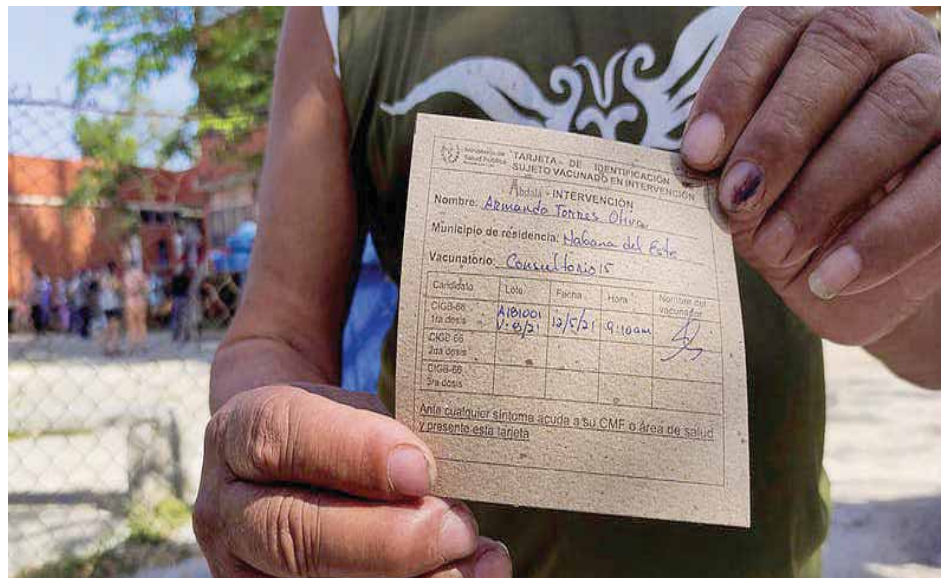 Ministerio de Salud Pública
TARJETA - DE IDENTIFICACIÓN
SUJETO VACUNADO EN INTERVENCIÓN
Abdala - INTERVENCIÓN
Nombre: Armando Torres Oliva
Municipio de residencia: Habana del Este
Vacunatorio: Consultorio 15
Candidato Lote Fecha Hora Nombre del vacunador
CIGB-66 1ra dosis A1B1001 V-8/21 12/5/21 9:10am
CIGB-66 2da dosis
CIGB-66 3ra dosis
Ante cualquier síntoma acuda a su CMF o área de salud
y presente esta tarjeta